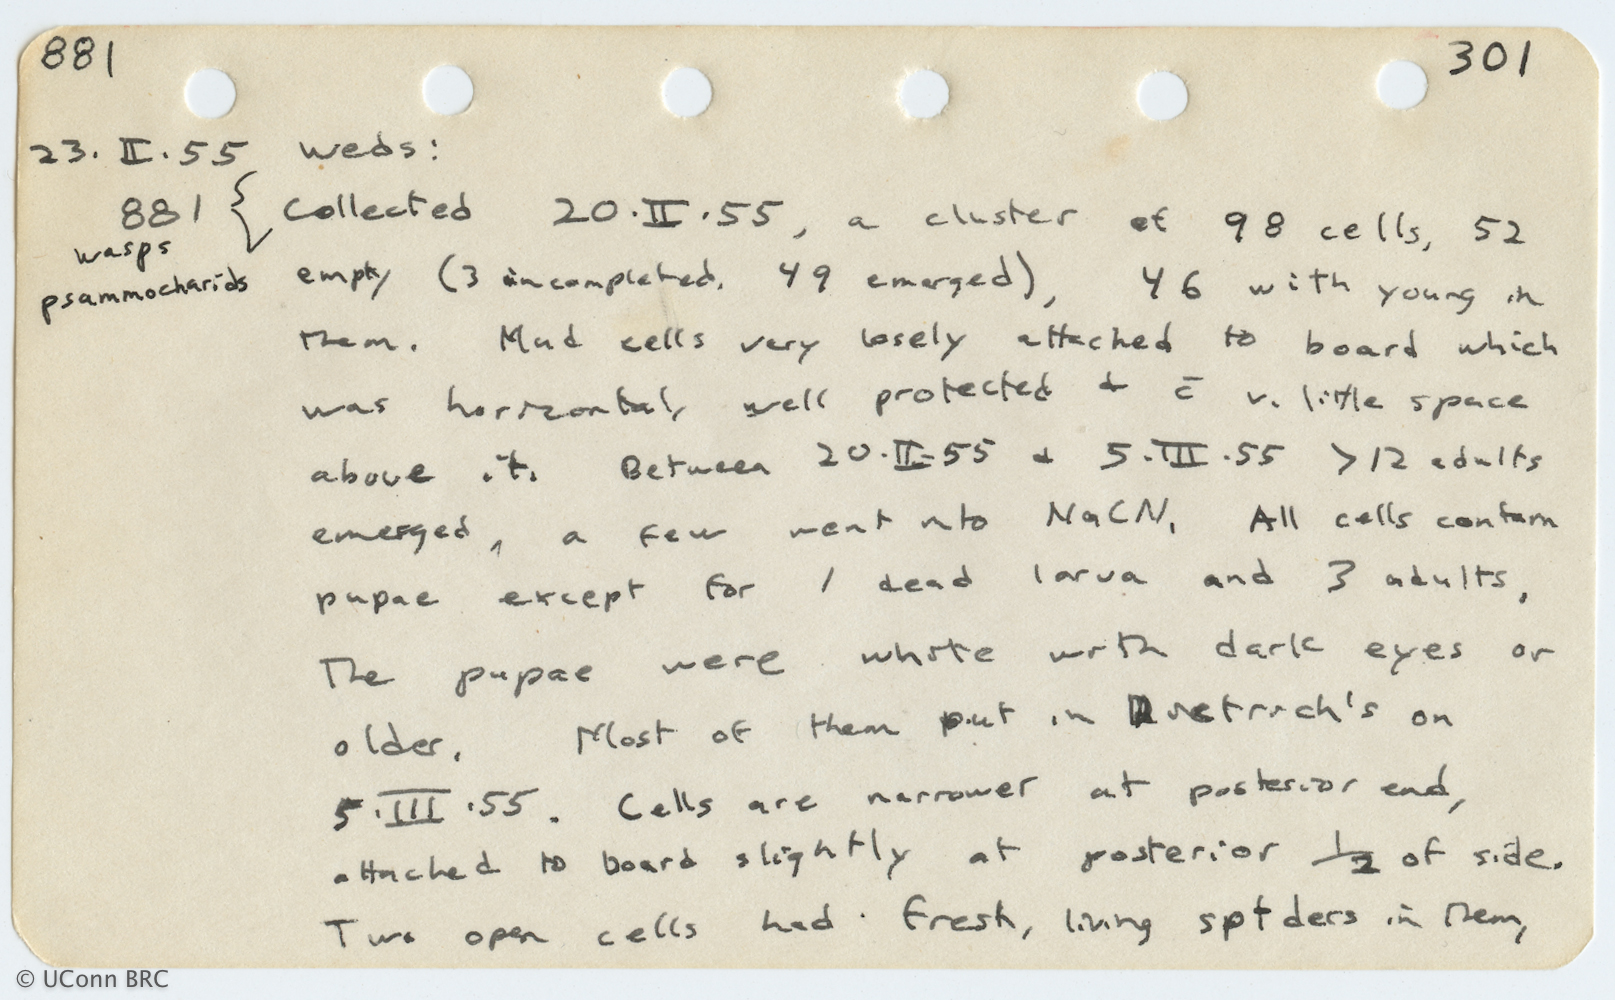 881 301
23.II.55 weds:
881 { Collected 20.II.55, a cluster of 98 cells, 52
wasps
psammocharids empty (3 incompleted, 49 emerged), 46 with young in
them. Mud cells very losely attached to board which
was horizontal, well protected & c̄ v. little space
above it. Between 20.II.55 & 5.III.55 >12 adults
emerged, a few went into NaCN. All cells contain
pupae except for 1 dead larva and 3 adults.
The pupae were white with dark eyes or
older. Most of them put in Dietrich's on
5.III.55. Cells are narrower at posterior end,
attached to board slightly at posterior 1/2 of side.
Two open cells had fresh, living spiders in them,
© UConn BRC